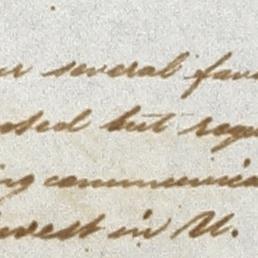 ur several fav
osed but requ
ing communica
nvest in U.